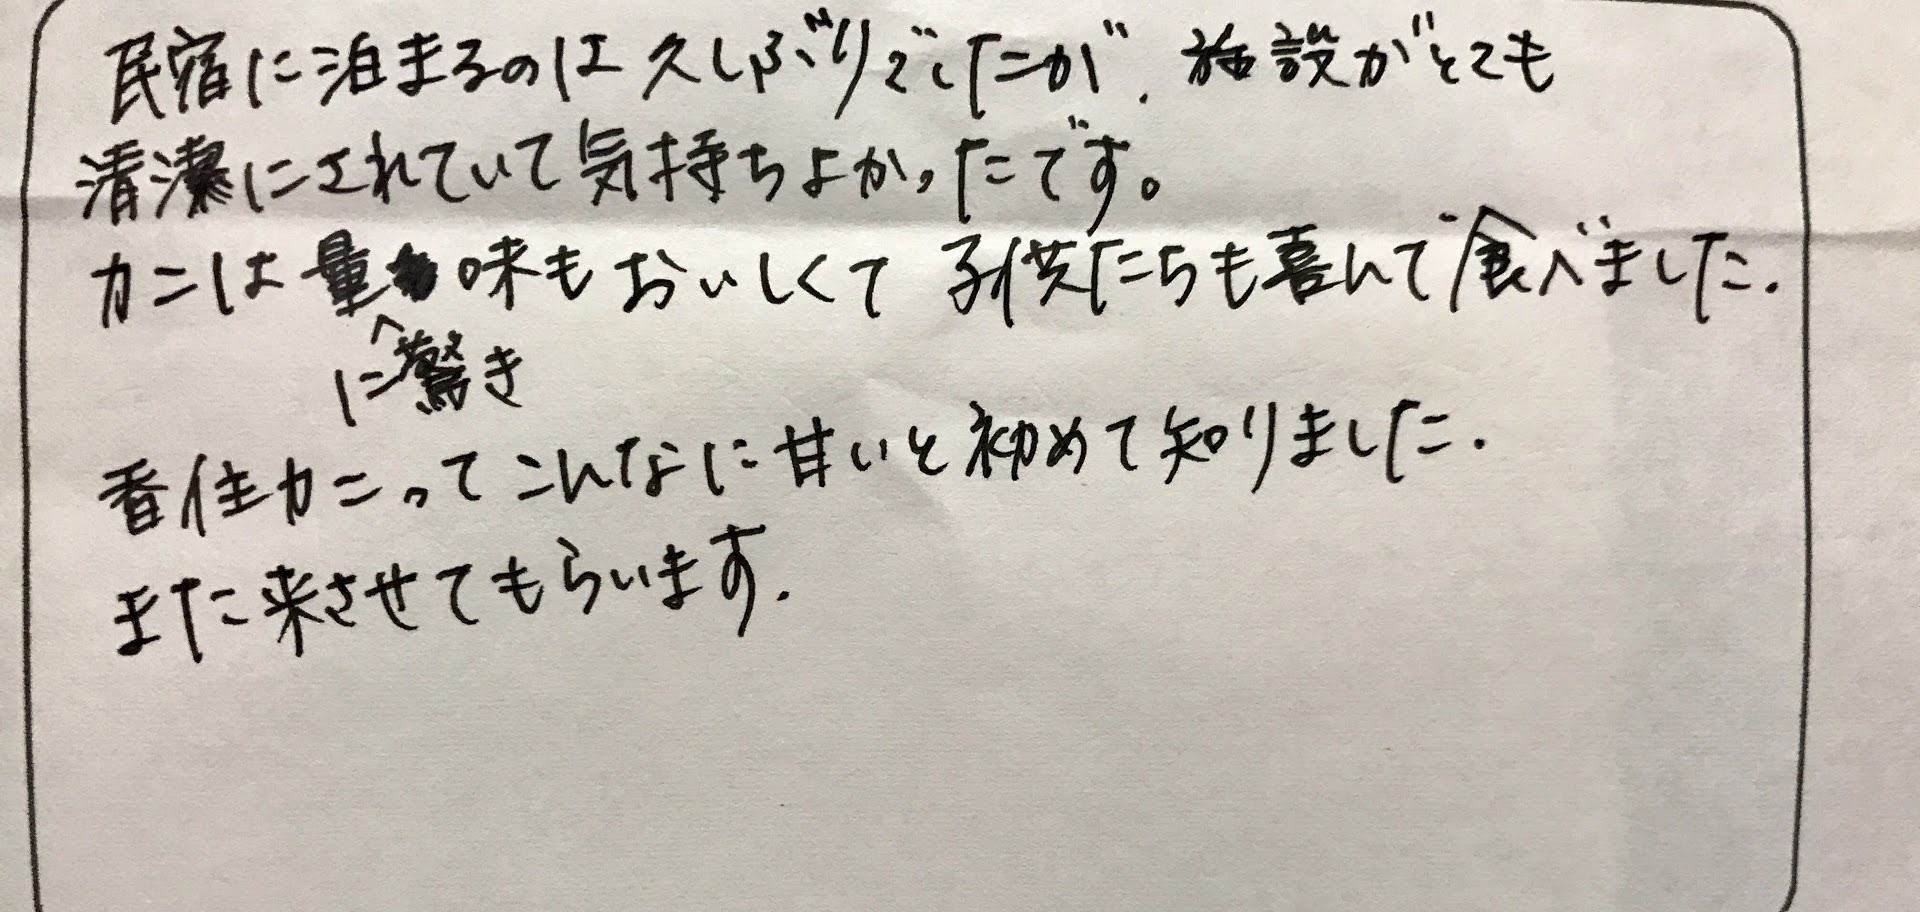 民宿に泊まるのは久しぶりでしたが、施設がとても
清潔にされていて気持ちよかったです。
カニは量に驚き味もおいしくて子供たちも喜んで食べました.
香住カニってこんなに甘いと初めて知りました.
また来させてもらいます.